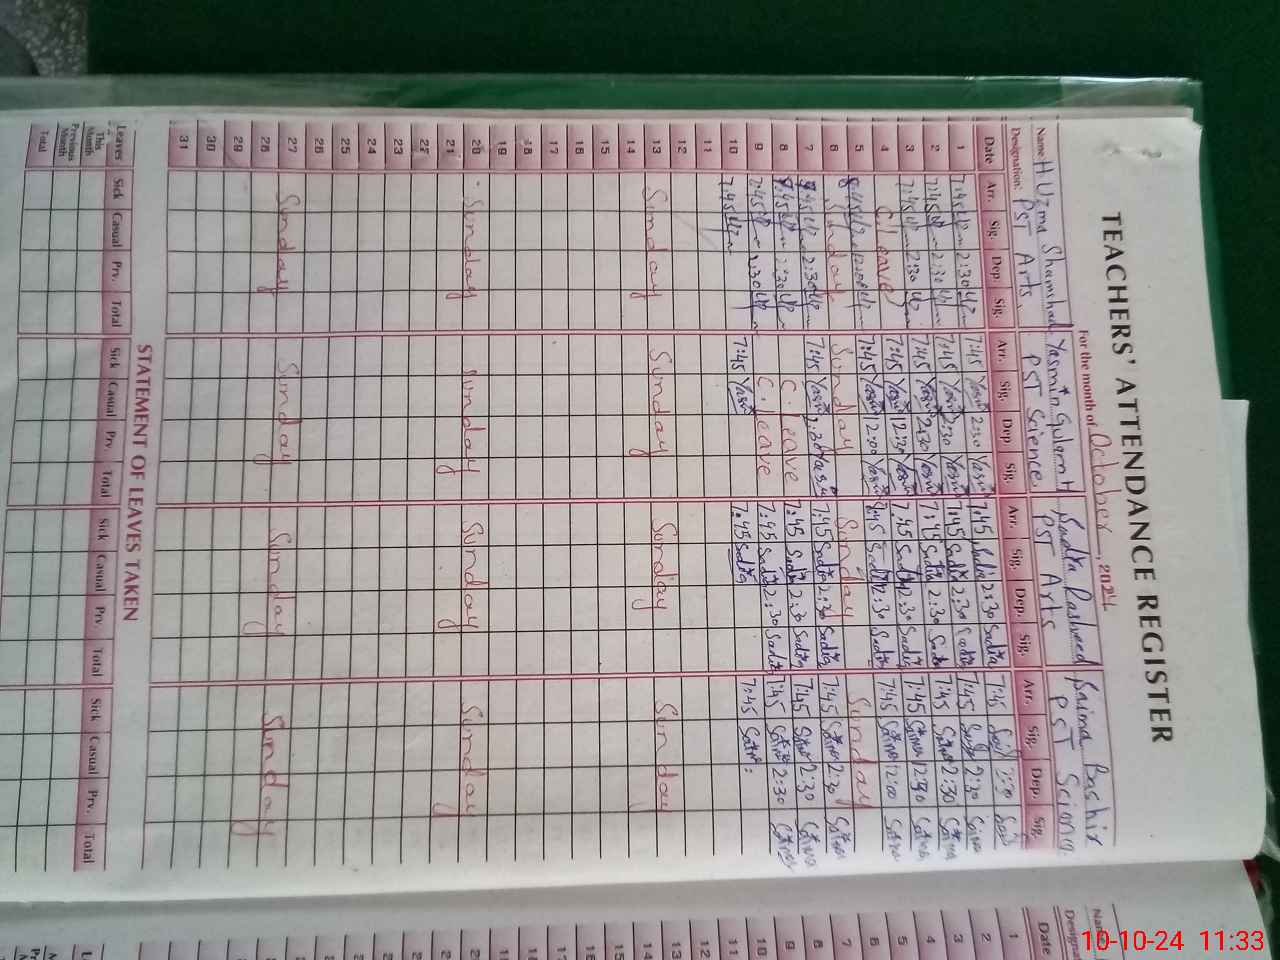 TEACHERS' ATTENDANCE REGISTER
For the month of October, 2024
Name H. Uzma Shamshad Yasmin Gulam H Sadia Rasheed Saima Bashir
Designation: PST Arts PST Science PST Arts PST Science
Date Arr. Sig. Dep. Sig. Arr. Sig. Dep. Sig. Arr. Sig. Dep. Sig. Arr. Sig. Dep. Sig.
1 7:45 2:30 7:45 Yasmin 2:30 Yasmin 7:45 Sadia 2:30 Sadia 7:45 2:30
2 7:45 2:30 7:45 Yasmin 2:30 Yasmin 7:45 Sadia 2:30 Sadia 7:45 2:30 Saima
3 7:45 2:30 7:45 Yasmin 2:30 Yasmin 7:45 Sadia 2:30 Sadia 7:45 Saima 2:30 Saima
4 C. leave 7:45 Yasmin 12:30 Yasmin 7:45 Sadia 12:30 Sadia 7:45 Saima 12:30 Saima
5 7:45 Yasmin 12:00 Yasmin Sadia 12:30 Sadia 7:45 Saima 12:00 Saima
6 Sunday Sunday Sunday Sunday
7 2:30 7:45 Yasmin 2:30 Yasmin 7:45 Sadia 2:30 Sadia 7:45 Saima 2:30 Saima
8 2:30 C. leave 7:45 Sadia 2:30 Sadia 7:45 Saima 2:30 Saima
9 7:45 2:30 C. leave 7:45 Sadia 2:30 Sadia 7:45 Saima 2:30 Saima
10 7:45 7:45 Yasmin 7:45 Sadia 7:45 Saima
11
12
13 Sunday Sunday Sunday Sunday
14
15
16
17
18
19
20 Sunday Sunday Sunday Sunday
21
22
23
24
25
26
27 Sunday Sunday Sunday Sunday
28
29
30
31
STATEMENT OF LEAVES TAKEN
Leaves Sick Casual Prv. Total Sick Casual Prv. Total Sick Casual Prv. Total Sick Casual Prv. Total
This Month
Previous Month
Total
Date
1
2
3
4
5
6
7
8
9
10
11
12
10-10-24 11:33